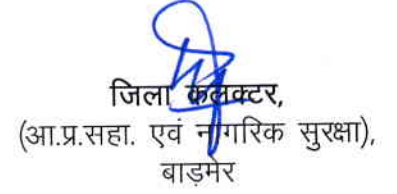 जिला कलक्टर,
(आ.प्र.सहा. एवं नागरिक सुरक्षा),
बाड़मेर